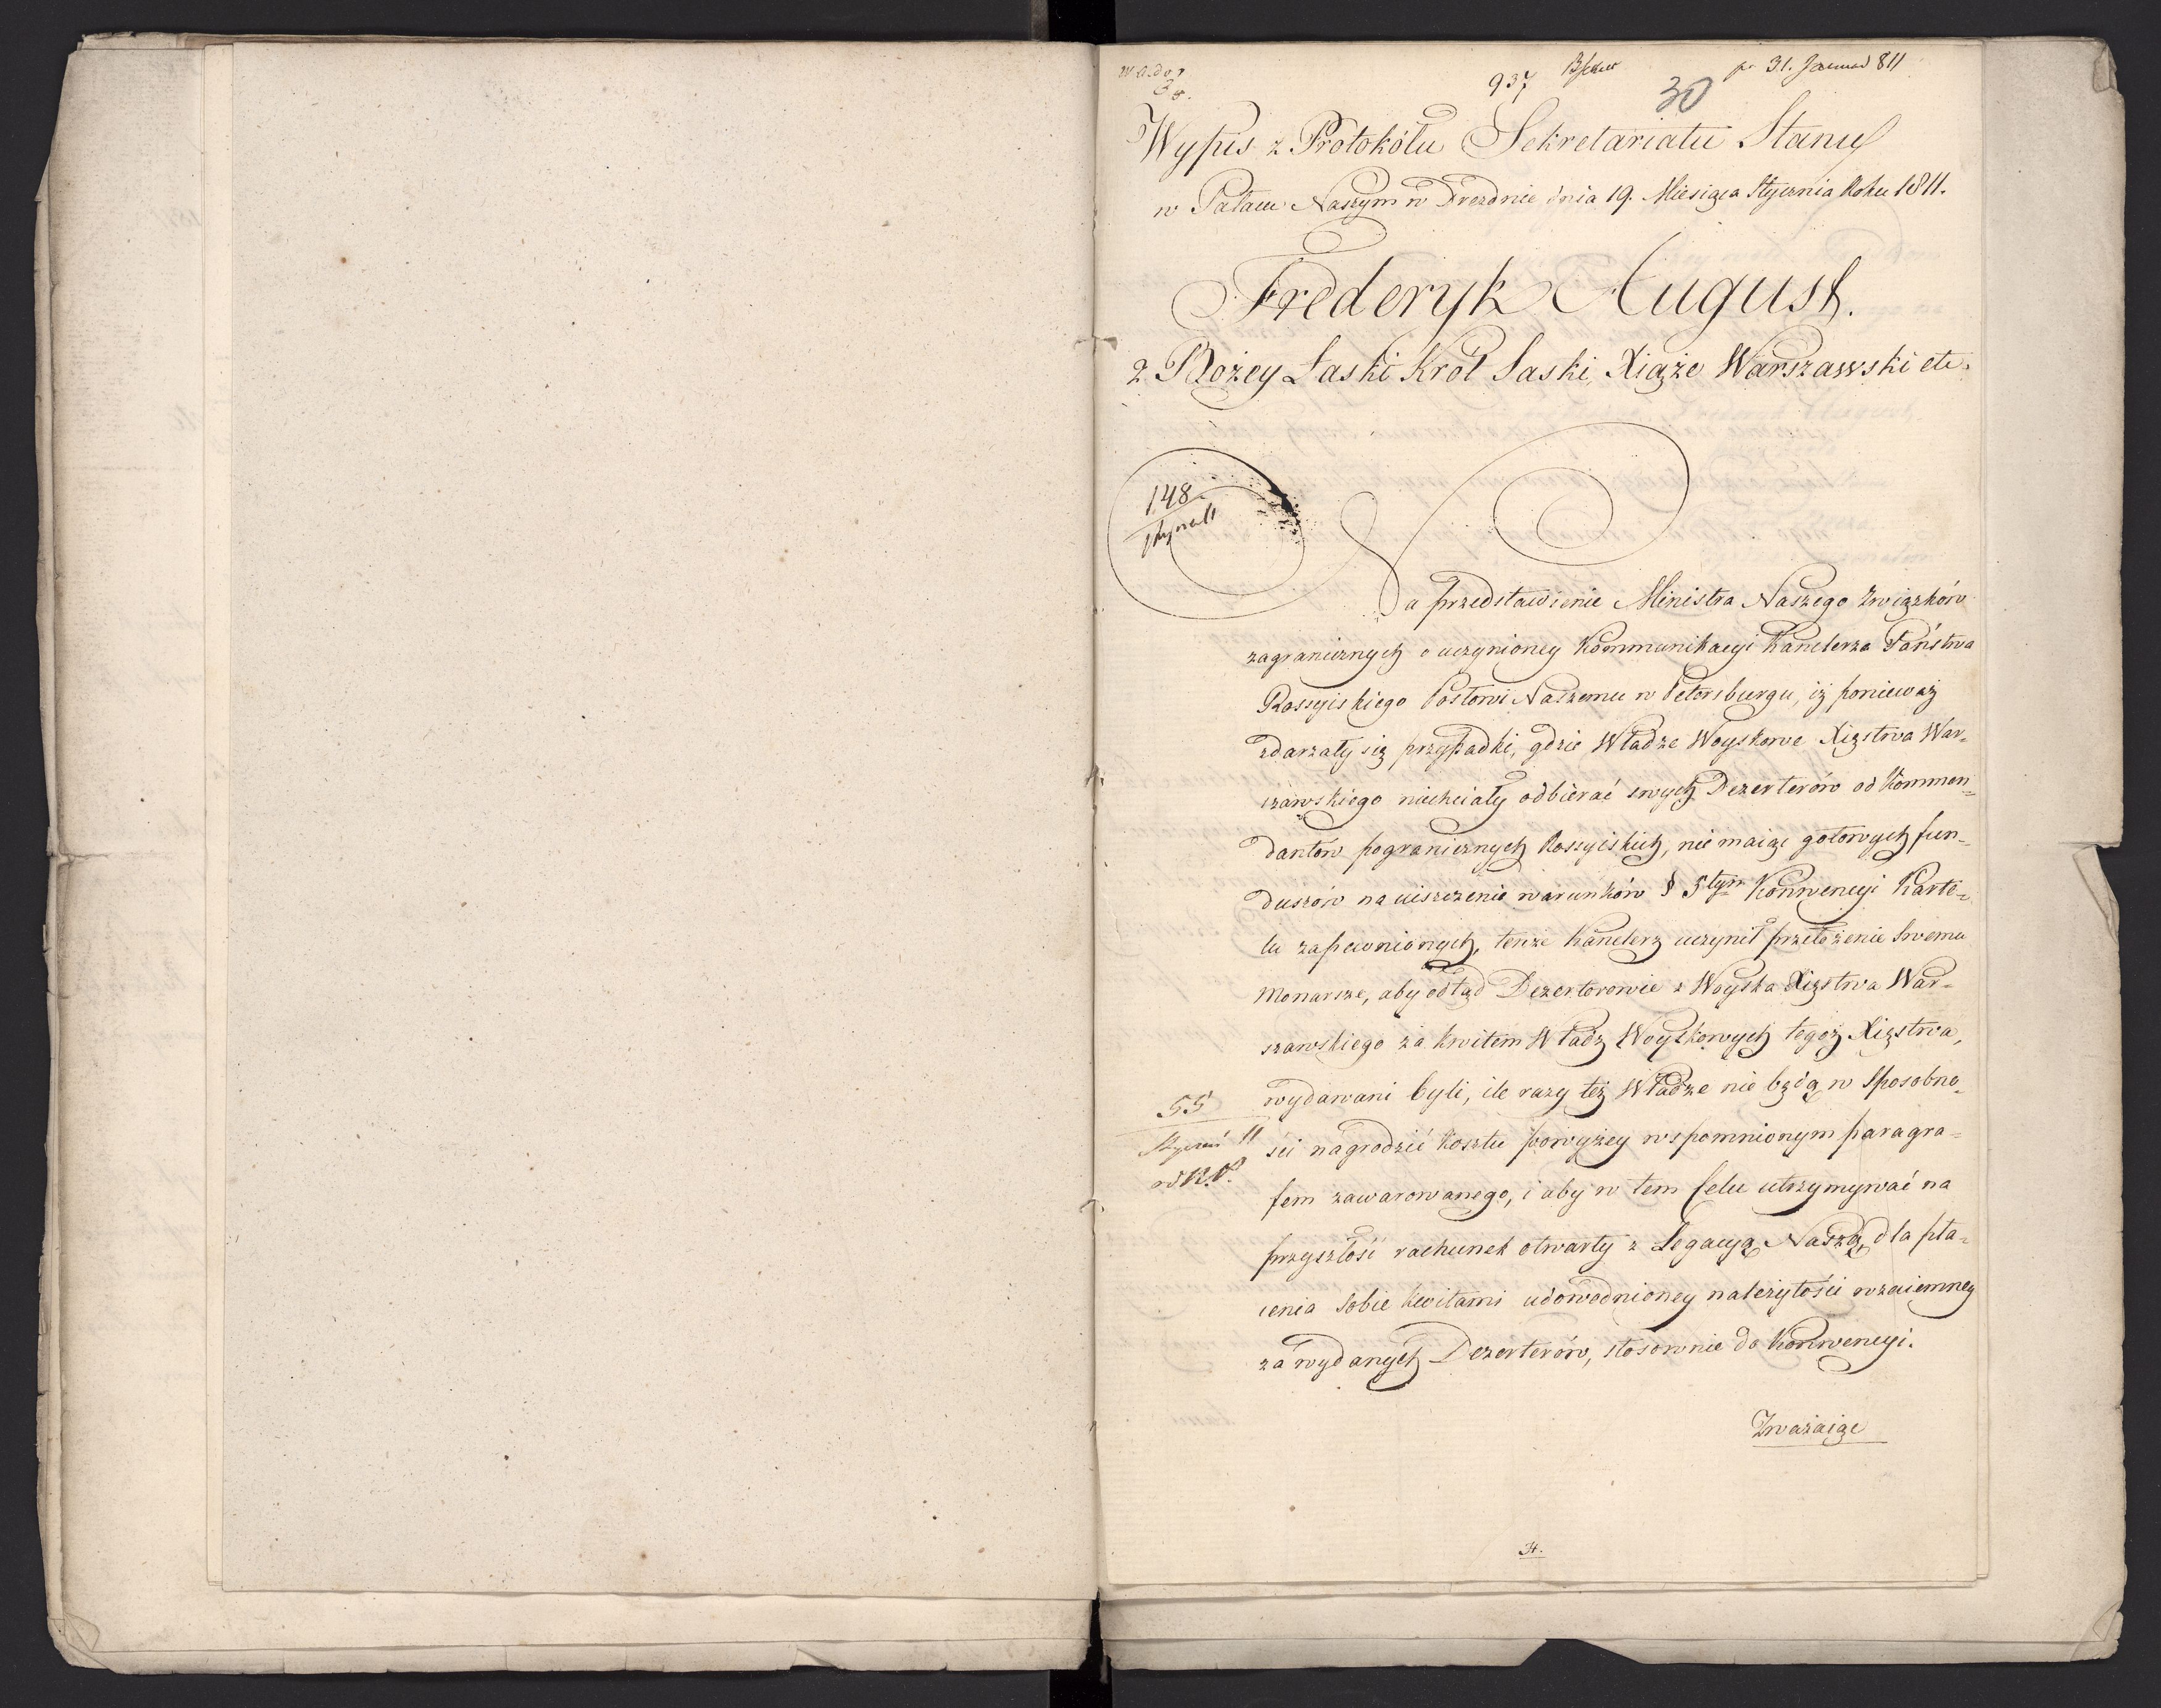 937
30
31. Januar 811
Wypis z Protokółu Sekretariatu Stanu
w Pałacu Naszym w Dreznie dnia 19. Miesiąca Stycznia Roku 1811.
Frederyk August.
z Bożey Łaski Król Saski, Xiąże Warszawski etc.
148
Na przedstawienie Ministra Naszego Związków
zagranicznych o uczynioney Kommunikacyi Kanclerza Państwa
Rossyiskiego Posłowi Naszemu w Petersburgu, iż ponieważ
zdarzały się przypadki, gdzie Władze Woyskowe Xięstwa War=
szawskiego niechciały odbierać swych Dezerterów od Kommen=
dantów pogranicznych Rossyiskich, nie maiąc gotowych fun=
duszów na uiszczenie warunków § 5tym Konwencyi Karte=
lu zapewnionych, tenże Kanclerz uczynił przełożenie Swemu
Monarsze, aby odtąd Dezerterowie z Woyska Xięstwa War=
szawskiego za kwitem Władz Woyskowych tegoż Xięstwa,
wydawani byli, ile razy też Władze nie będą w sposobno=
ści nagrodzić kosztu powyżey wspomnionym paragra=
fem zawarowanego, i aby w tem celu utrzymywać na
przyszłość rachunek otwarty z Legacyą Naszą, dla pła=
cenia sobie kwitami udowodnioney należytości wzaiemney
za wydanych Dezerterów, stosownie do Konwencyi.
55
Styczeń 11
Zważaiąc